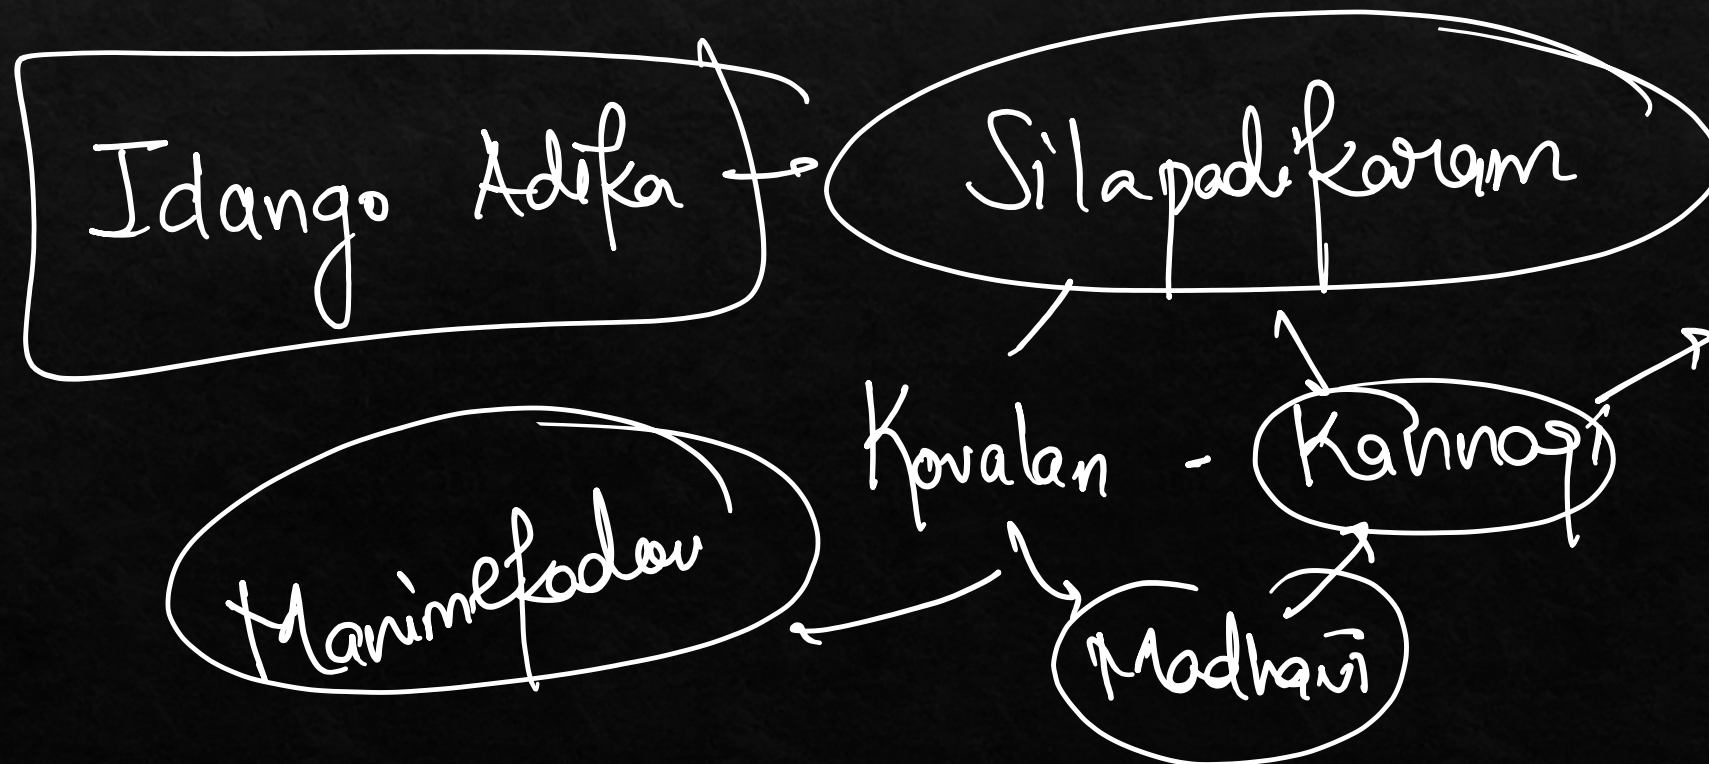 Idango Adika
Silapadikaram
Kovalan - Kannagi
Manimekadau
Madhavi